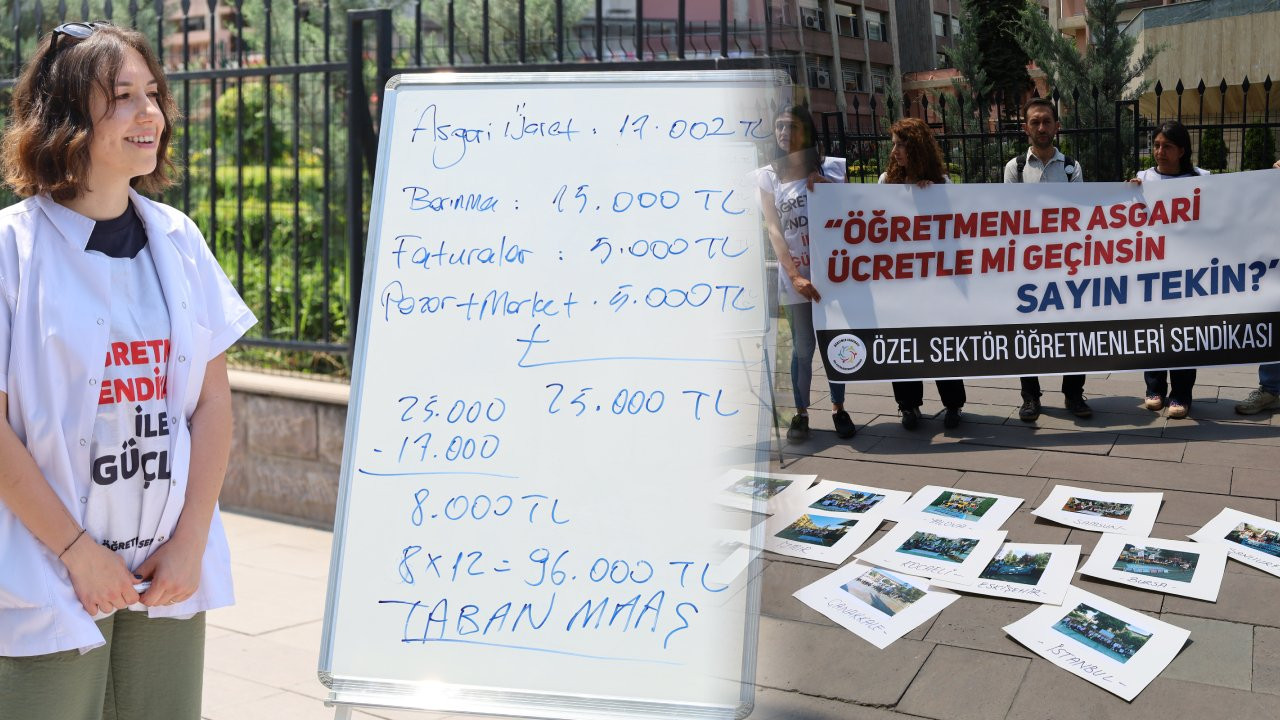 Asgari Ücret . 17.002 TL
Barınma : 15.000 TL
Faturalar : 5.000 TL
Pazar+Market . 5.000 TL
+
25.000 TL
25.000
- 17.000
8.000 TL
8x12 = 96.000 TL
TABAN MAAŞ
ÖĞRETM
SENDİKA
İLE
GÜÇL
ÖĞRETMEN
“ÖĞRETMENLER ASGARİ
ÜCRETLE Mİ GEÇİNSİN
SAYIN TEKİN?”
ÖZEL SEKTÖR ÖĞRETMENLERİ SENDİKASI
YALOVA
SAMSUN
İZMİR
KOCAELİ
ESKİŞEHİR
BURSA
ÇANAKKALE
- İSTANBUL -